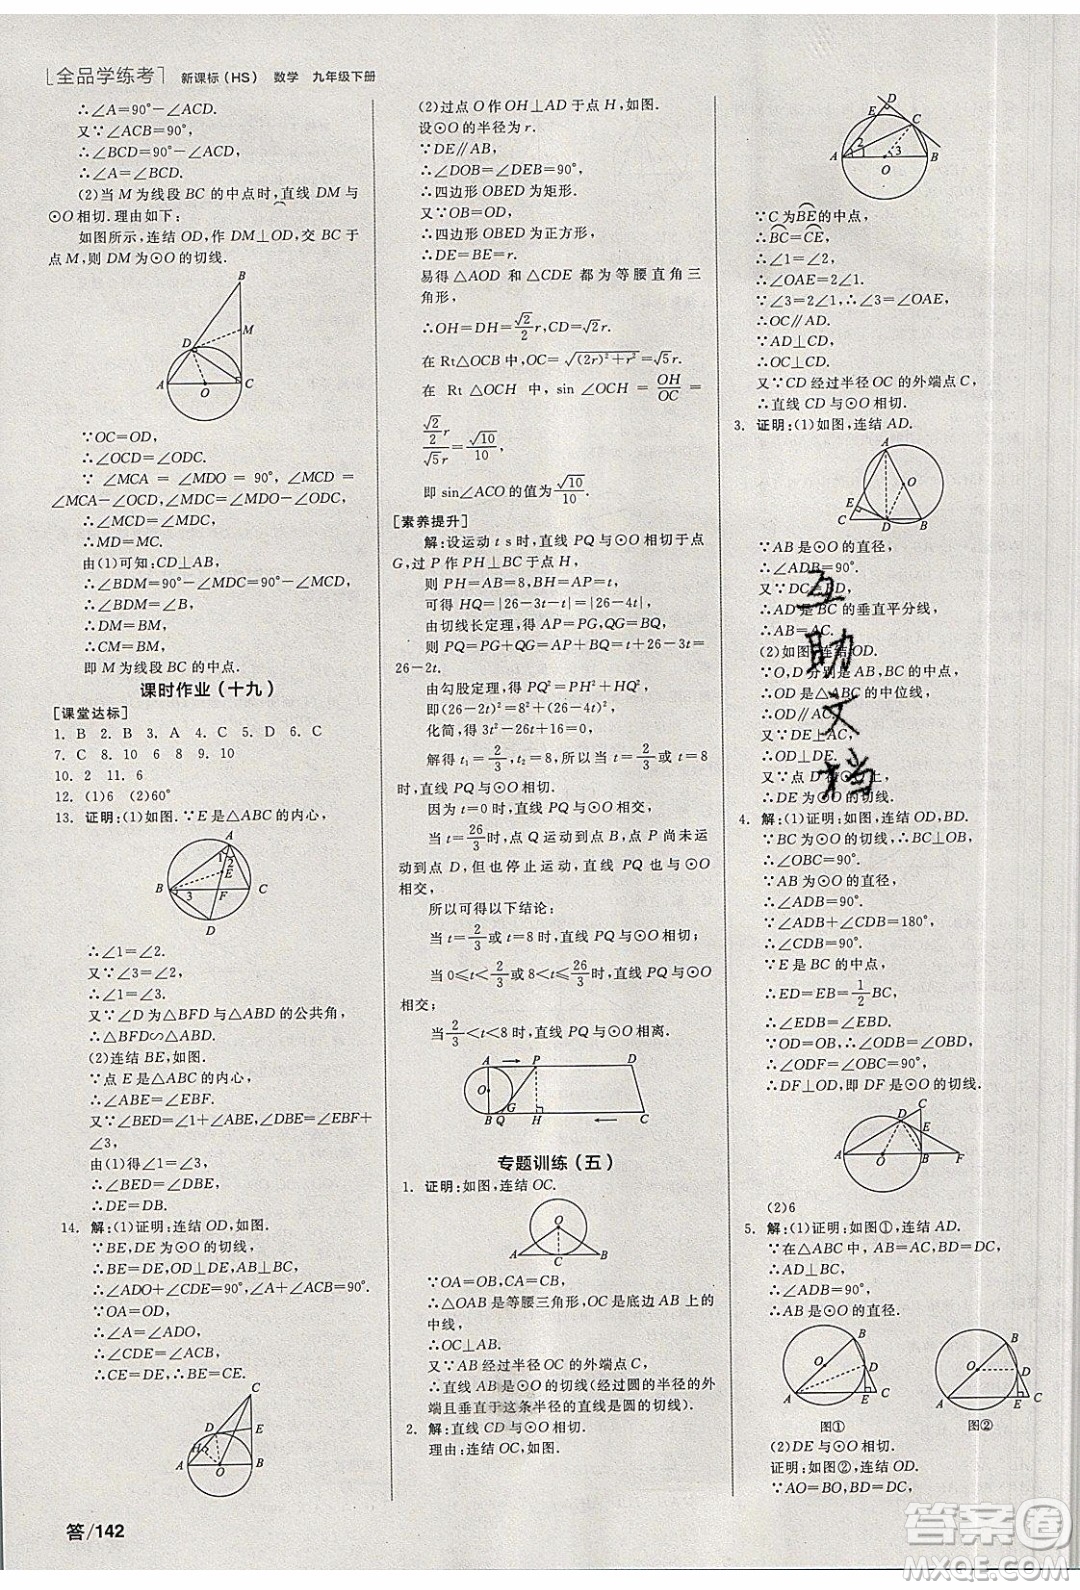 全品学练考 新课标(HS) 数学 九年级下册
∴∠A=90°-∠ACD.
又∵∠ACB=90°,
∴∠BCD=90°-∠ACD,
∴∠A=∠BCD.
(2)当 M 为线段 BC 的中点时,直线 DM 与
⊙O 相切.理由如下:
如图所示,连结 OD,作 DM⊥OD,交 BC 于
点 M,则 DM 为⊙O 的切线.
B
D
M
A
O
C
∵OC=OD,
∴∠OCD=∠ODC.
∵ ∠MCA = ∠MDO = 90°, ∠MCD =
∠MCA-∠OCD,∠MDC=∠MDO-∠ODC,
∴∠MCD=∠MDC,
∴MD=MC.
由(1)可知:CD⊥AB,
∴∠BDM=90°-∠MDC,∠B=90°-∠BCD,
∴∠BDM=∠B,
∴DM=BM,
∴CM=BM,
即 M 为线段 BC 的中点.
课时作业(十九)
[课堂达标]
1. B 2. B 3. A 4. C 5. D 6. C
7. C 8. 10 6 8 9. 10
10. 2 11. 6
12. (1)6 (2)60°
13. 证明:(1)如图.∵E 是△ABC 的内心,
A
1
2
E
B
3
F
C
D
∴∠1=∠2.
又∵∠3=∠2,
∴∠1=∠3,
又∵∠D 为△BFD 与△ABD 的公共角,
∴△BFD∽△ABD.
(2)连结 BE,如图.
∵点 E 是△ABC 的内心,
∴∠ABE=∠EBF.
又∵∠BED=∠1+∠ABE,∠DBE=∠EBF+
∠3,
由(1)得∠1=∠3,
∴∠DBE=∠BED,
∴DE=DB.
14. 解:(1)证明:连结 OD,如图.
∵BE,DE 为⊙O 的切线,
∴BE=DE,OD⊥DE,AB⊥CB,
∴∠ADO+∠CDE=90°,∠A+∠ACB=90°.
∵OA=OD,
∴∠A=∠ADO,
∴∠CDE=∠ACB,
∴CE=DE,∴CE=BE.
C
D
E
H
A
O
B
答/142
(2)过点 O 作 OH⊥AD 于点 H,如图.
设⊙O 的半径为 r.
∵DE∥AB,
∴∠DOB=∠ODE=90°,
∴四边形 OBED 为矩形.
又∵OB=OD,
∴四边形 OBED 为正方形,
∴DE=BE=r.
易得 △AOD 和 △CDE 都为等腰直角三
角形,
∴OH=DH=√2/2 r,CD=√2r.
在 Rt△OCB 中,OC=√((2r)²+r²)=√5r.
在 Rt △OCH 中, sin ∠OCH = OH/OC =
(√2/2 r)/(√5r)=√10/10,
即 sin∠ACO 的值为√10/10.
[素养提升]
解:设运动 t s 时,直线 PQ 与⊙O 相切于点
G,过 P 作 PH⊥BC 于点 H,
则 PH=AB=8,BH=AP=t,
可得 HQ=|26-3t-t|=|26-4t|,
由切线长定理,得 AP=PG,QG=BQ,
则 PQ=PG+QG=AP+BQ=t+26-3t=
26-2t.
由勾股定理,得 PQ²=PH²+HQ²,
即(26-2t)²=8²+(26-4t)²,
化简,得 3t²-26t+16=0,
解得 t₁=2/3,t₂=8,所以当 t=2/3或 t=8 时,
直线 PQ 与⊙O 相切.
因为 t=0 时,直线 PQ 与⊙O 相交,
当 t=26/3时,点 Q 运动到点 B,点 P 尚未运
动到点 D,但也停止运动,直线 PQ 与⊙O 也
相交,
所以可得以下结论:
当 t=2/3或 t=8 时,直线 PQ 与⊙O 相切;
当 0≤t<2/3或 8<t≤26/3时,直线 PQ 与⊙O
相交;
当2/3<t<8 时,直线 PQ 与⊙O 相离.
A
P
D
O
G
B
Q
H
C
专题训练(五)
1. 证明:如图,连结 OC.
O
A
C
B
∵OA=OB,CA=CB,
∴△OAB 是等腰三角形,OC 是底边 AB 上的
中线,
∴OC⊥AB.
又∵AB 经过半径 OC 的外端点 C,
∴直线 AB 是⊙O 的切线(经过圆的半径的外
端且垂直于这条半径的直线是圆的切线).
2. 解:直线 CD 与⊙O 相切.
理由:连结 OC,如图.
D
E
C
2
1
3
A
O
B
∵C 为BE的中点,
∴BC=CE,
∴∠1=∠2,
∴∠OAE=2∠1.
∵∠3=2∠1,∴∠3=∠OAE,
∴OC∥AD.
∵AD⊥CD,
∴OC⊥CD.
又∵CD 经过半径 OC 的外端点 C,
∴直线 CD 与⊙O 相切.
3. 证明:(1)如图,连结 AD.
A
O
E
C
D
B
∵AB 是⊙O 的直径,
∴∠ADB=90°.
又∵DC=BD,
∴AD 是 BC 的垂直平分线,
∴AB=AC.
(2)如图,连结 OD.
∵O,D 分别为 AB,BC 的中点,
∴OD 是△ABC 的中位线,
∴OD∥AC.
又∵DE⊥AC,
∴OD⊥DE.
又∵点 D 在⊙O 上,
∴DE 为⊙O 的切线.
4. 解:(1)证明:如图,连结 OD,BD.
∵BC 为⊙O 的切线,∴BC⊥OB,
∴∠ABC=90°.
∵AB 为⊙O 的直径,
∴∠ADB=90°.
∵∠ADB+∠CDB=180°,
∴∠CDB=90°.
∵E 是 BC 的中点,
∴ED=EB=1/2 BC,
∴∠EDB=∠EBD.
∵OD=OB,∴∠ODB=∠OBD,
∴∠ODF=∠OBC=90°,
∴DF⊥OD,即 DF 是⊙O 的切线.
C
D
E
A
O
B
F
(2)6
5. 解:(1)证明:如图①,连结 AD.
∵在△ABC 中,AB=AC,BD=DC,
∴AD⊥BC,
∴∠ADB=90°,
∴AB 是⊙O 的直径.
B
O
D
A
E
C
图①
B
O
D
A
E
C
图②
(2)DE 与⊙O 相切.
证明:如图②,连结 OD.
∵AO=BO,BD=DC,
互助文档
答案圈
MXQE.COM